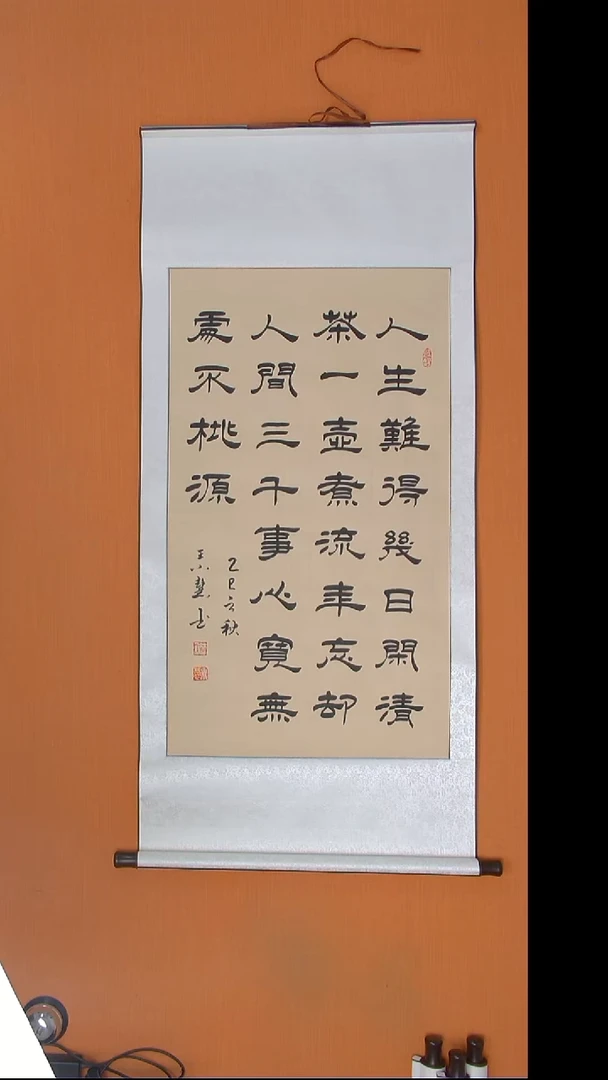 人生難得幾日閑清
茶一壺煮流年忘却
人間三千事心寬無
處不桃源
乙巳立秋